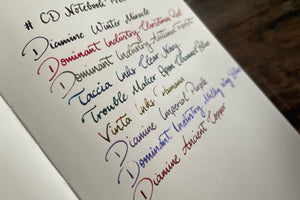 # CD Notebook
Diamine Winter Miracle
Dominant Industry Christmas Red
Dominant Industry Autumn Forest
Taccia Inks Clear Navy
Troublemaker Open Channel Blue
Vinta Inks
Diamine Imperial Purple
Dominant Industry Milky Way Blue
Diamine Ancient Copper